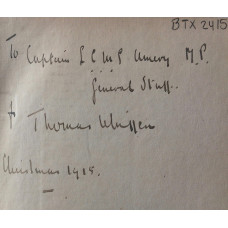 BTX 2415
To Captain L C M S Amery M.P.
General Staff.
fr Thomas Whissen
Christmas 1915.